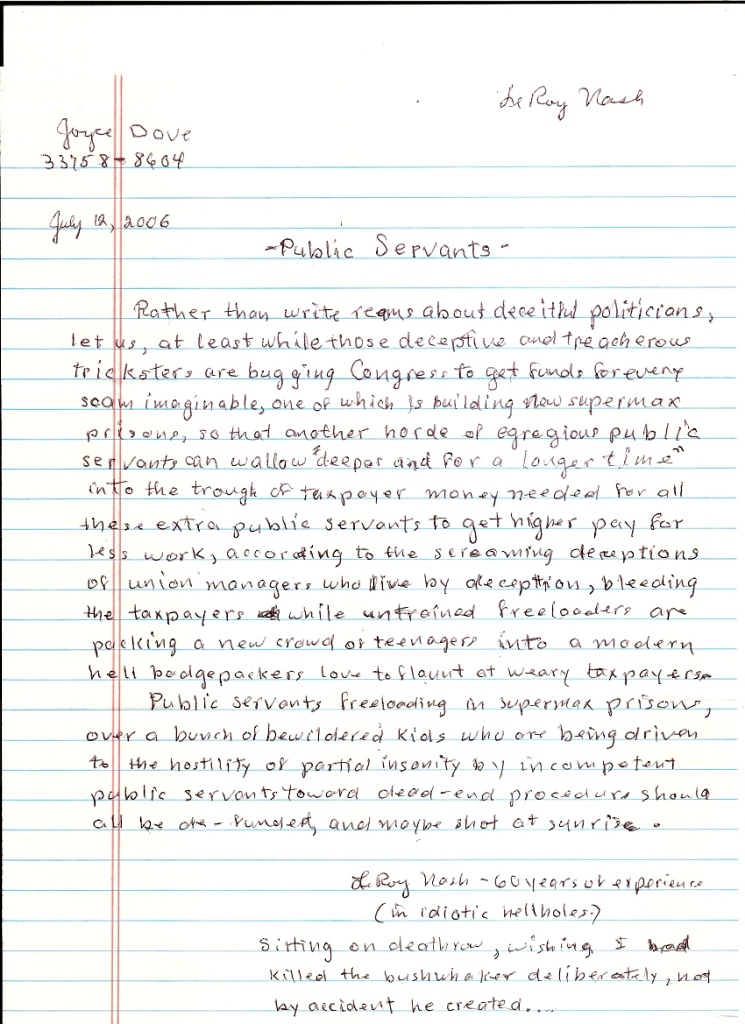 LeRoy Nash
Joyce Dove
33758-8604
July 12, 2006
-Public Servants-
Rather than write reams about deceitful politicians,
let us, at least while those deceptive and treacherous
tricksters are bugging Congress to get funds for every
scam imaginable, one of which is building new supermax
prisons, so that another horde of egregious public
servants can wallow "deeper and for a longer time"
into the trough of taxpayer money needed for all
these extra public servants to get higher pay for
less work, according to the screaming deceptions
of union managers who live by deception, bleeding
the taxpayers while untrained freeloaders are
packing a new crowd of teenagers into a modern
hell badgepackers love to flaunt at weary taxpayers.
Public servants freeloading in supermax prisons,
over a bunch of bewildered kids who are being driven
to the hostility of partial insanity by incompetent
public servants toward dead-end procedure should
all be de-funded, and maybe shot at sunrise.
LeRoy Nash - 60 years of experience
(in idiotic hellholes.)
Sitting on deathrow, wishing I had
killed the bushwhaker deliberately, not
by accident he created....